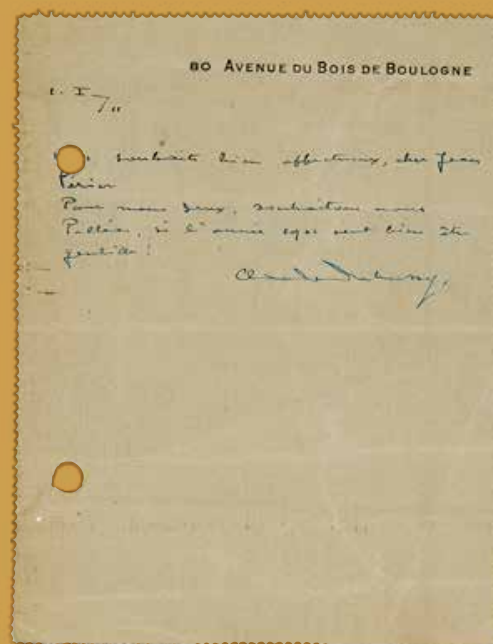 80 AVENUE DU BOIS DE BOULOGNE
1. I / 11
souhaits bien affectueux, cher Jean
Périer
Pour nous deux, souhaitons nous
Pelléas, si l'année veut bien être
gentille !
Claude Debussy